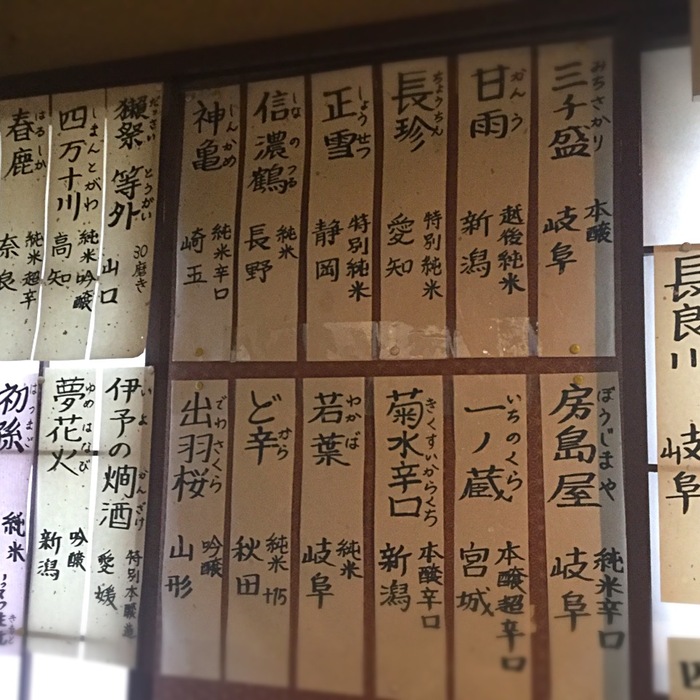 長良川
岐阜
三千盛
みちさかり
本醸
岐阜
甘雨
かんう
越後純米
新潟
長珍
ちょうちん
特別純米
愛知
正雪
しょうせつ
特別純米
静岡
信濃鶴
しなのつる
純米
長野
神亀
しんかめ
純米辛口
崎玉
獺祭 等外
だっさい とうがい
30磨き
山口
四万十川
しまんとがわ
純米吟醸
高知
春鹿
はるしか
純米超辛
奈良
房島屋
ぼうじまや
純米辛口
岐阜
一ノ蔵
いちのくら
本醸超辛口
宮城
菊水辛口
きくすいからくち
本醸辛口
新潟
若葉
わかば
純米
岐阜
ど辛
から
純米 +15
秋田
出羽桜
でわさくら
吟醸
山形
伊予の燗酒
いよ かんざけ
特別本醸造
愛媛
夢花火
ゆめはなび
吟醸
新潟
初孫
はつまご
純米